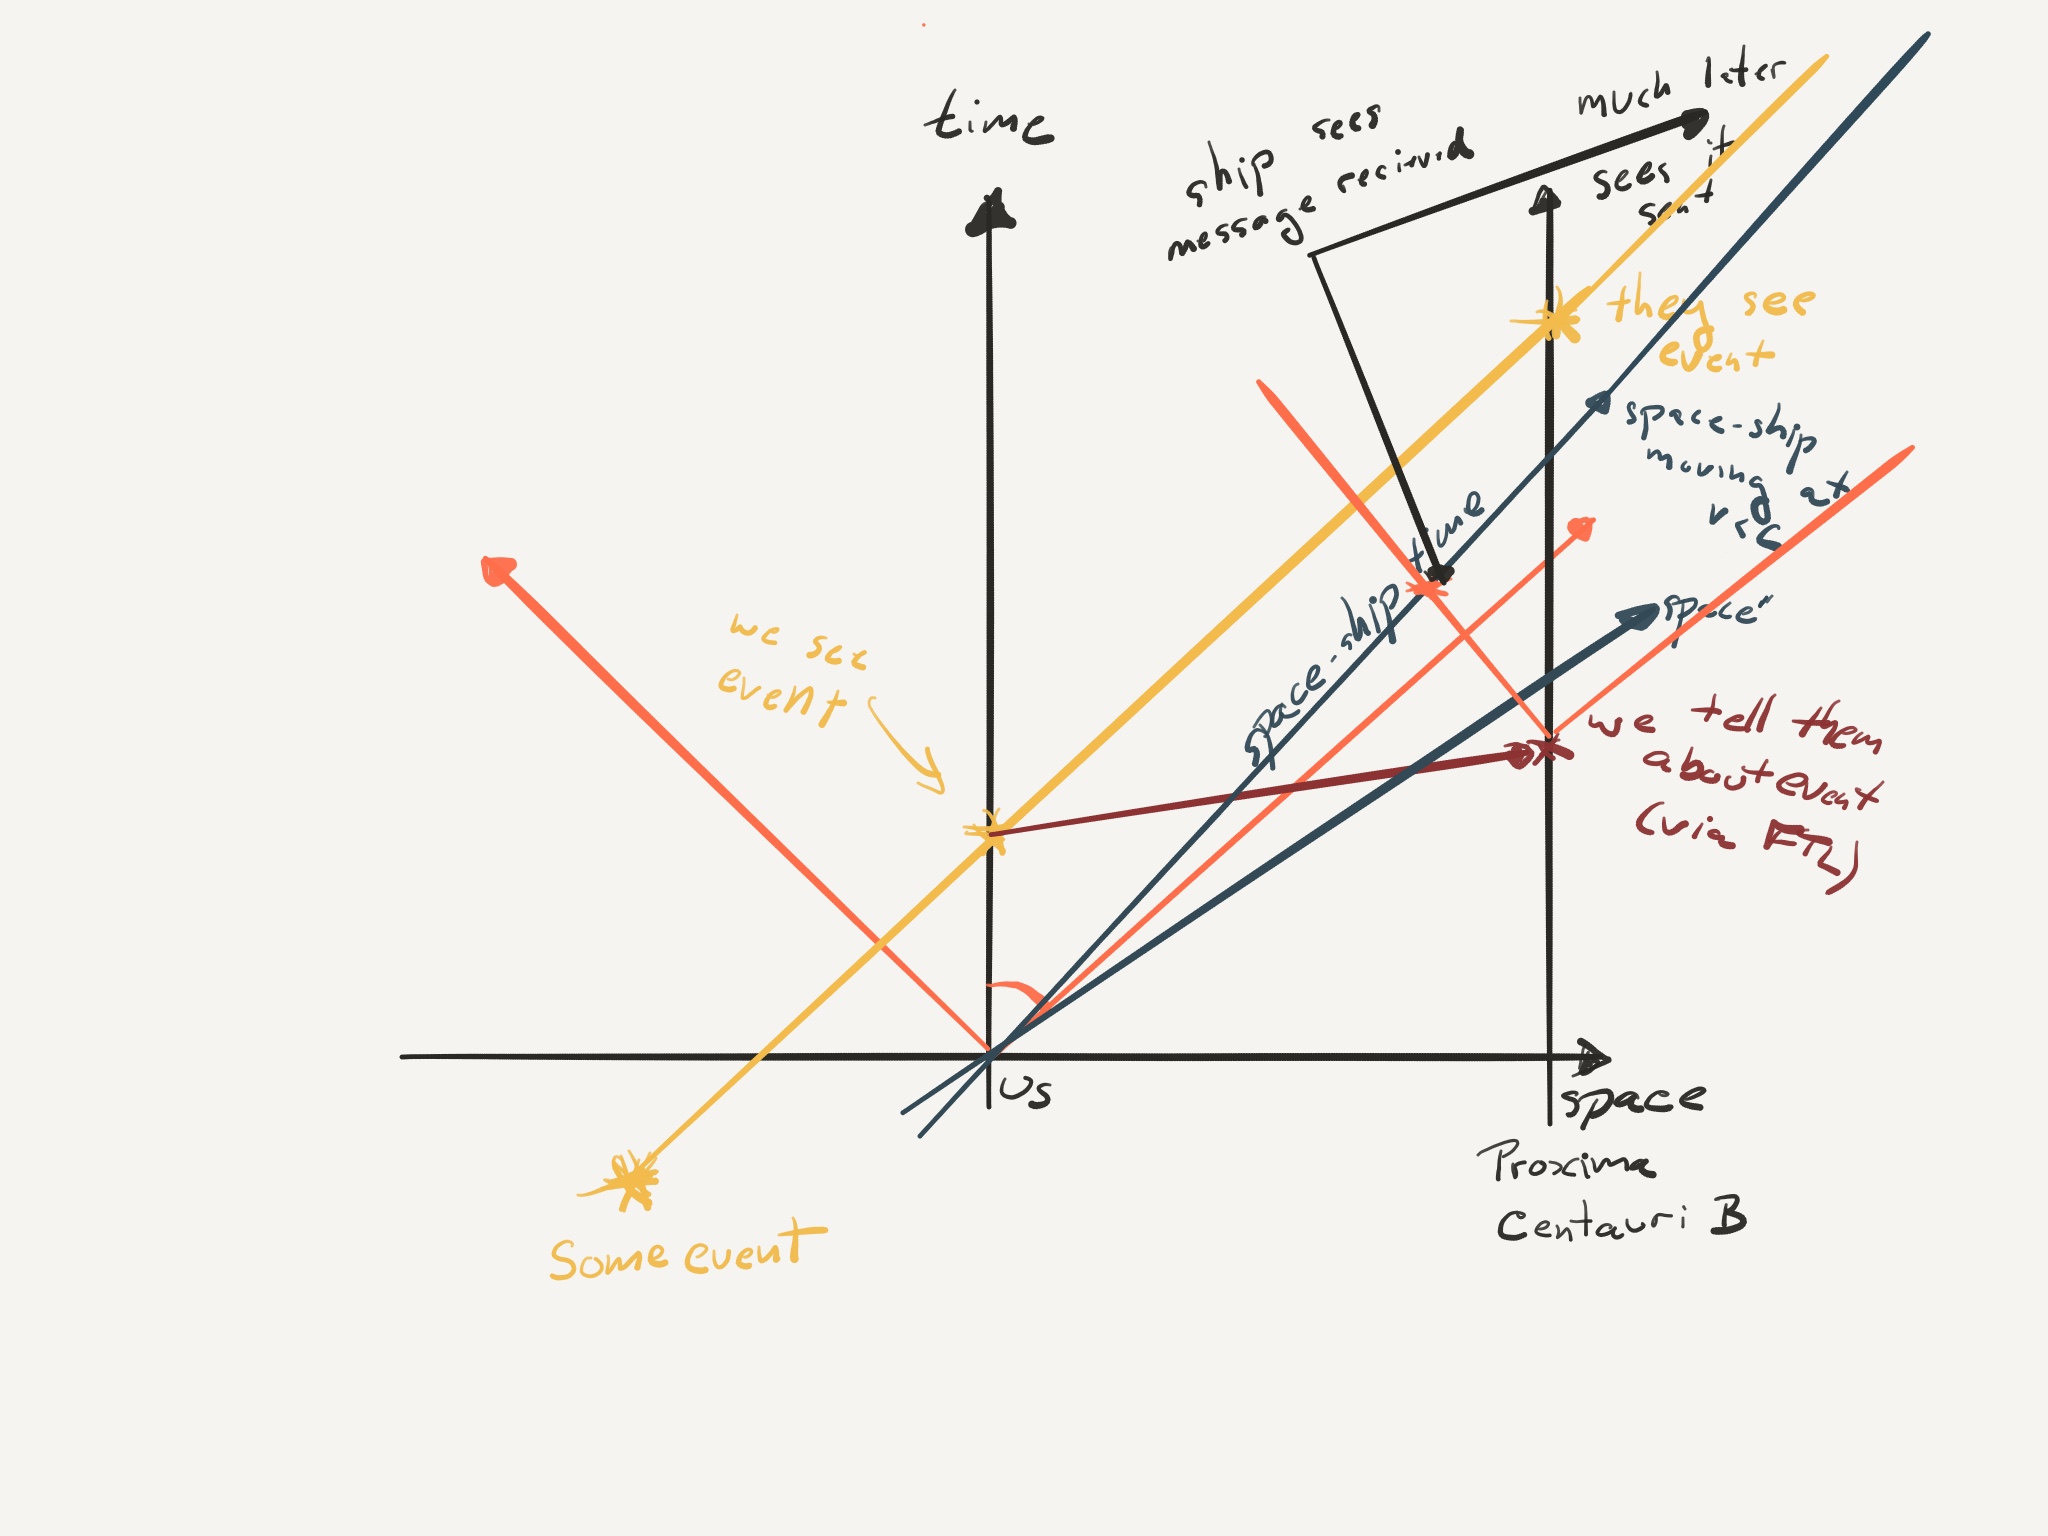 time
much later
ship sees
message recieved
sees it
sent
they see
event
space-ship
moving at
v<c
space-ship time
we see
event
space"
we tell them
about event
(via FTL)
us
space
Proxima
Centauri B
Some event